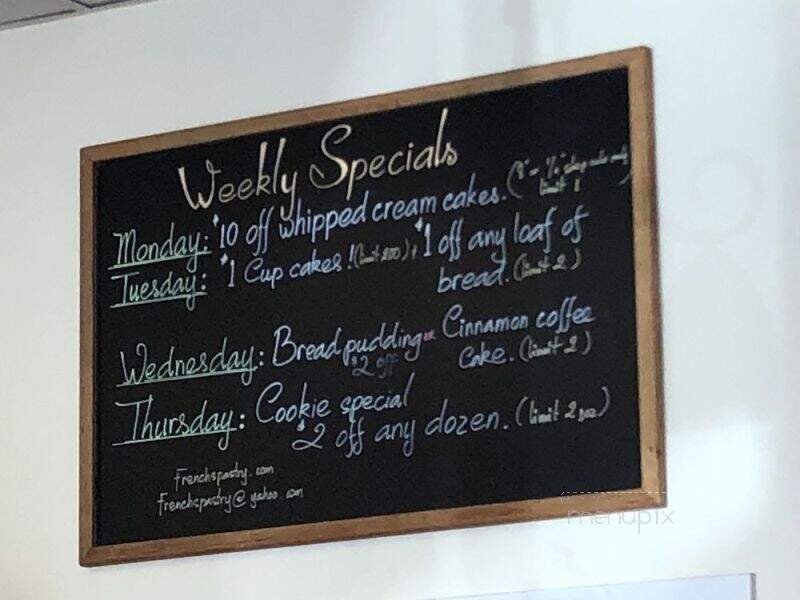 Weekly Specials
Monday: $10 off whipped cream cakes. (8" - ¼ only
limit 1)
Tuesday: $1 Cup cakes! (limit 200), $1 off any loaf of
bread. (limit 2)
Wednesday: Bread pudding or Cinnamon coffee
$2 off cake. (limit 2)
Thursday: Cookie special
$2 off any dozen. (limit 2 doz)
Frenchspastry.com
Frenchcpastry@yahoo.com
menupix